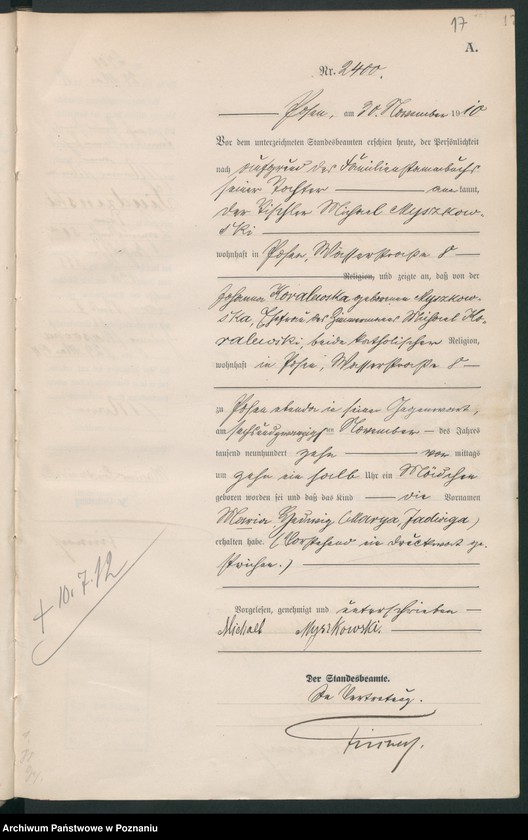 17
A.
Nr. 2400.
Posen, am 30. November 1910
Vor dem unterzeichneten Standesbeamten erschien heute, der Persönlichkeit
nach aufgrund des Familienstammbuchs
seiner Tochter anerkannt,
der Tischler Michael Myszkow-
ski
wohnhaft in Posen, Wasserstraße 8
Religion, und zeigte an, daß von der
Johanna Koralewska geborenen Myszkow-
ska, Ehefrau des Zimmermanns Michael Ko-
ralewski, beide katholischer Religion,
wohnhaft in Posen, Wasserstraße 8
zu Posen ebenda in seiner Gegenwart,
am sechsundzwanzigsten November des Jahres
tausend neunhundert zehn vor mittags
um zehn ein halb Uhr ein Mädchen
geboren worden sei und daß das Kind die Vornamen
Maria Hedwig (Marya, Jadwiga)
erhalten habe. (Vorstehend ein Druckwort ge-
strichen.)
Vorgelesen, genehmigt und unterschrieben
Michael Myszkowski.
Der Standesbeamte.
In Vertretung.
+ 10.7.12
Archiwum Państwowe w Poznaniu